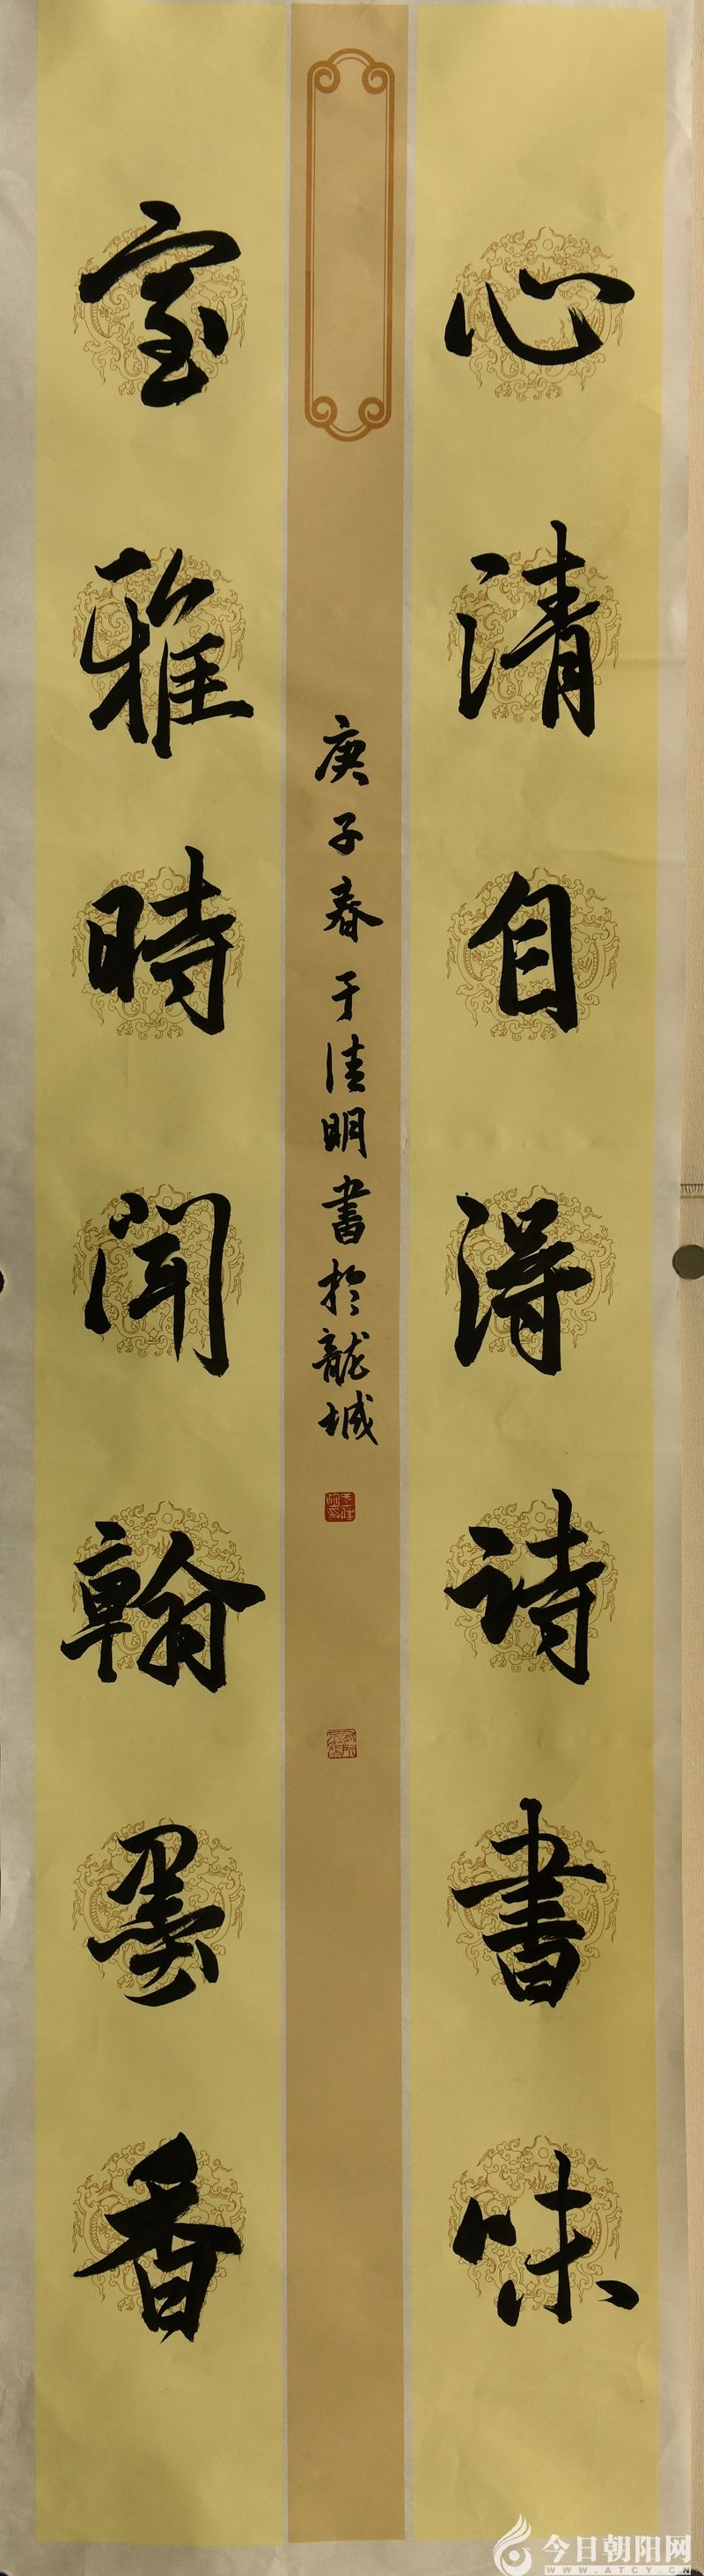 心清自得诗書味
室雅時闻翰墨香
庚子春于佳明書於龍城
今日朝阳网
WWW.ATCY.CN